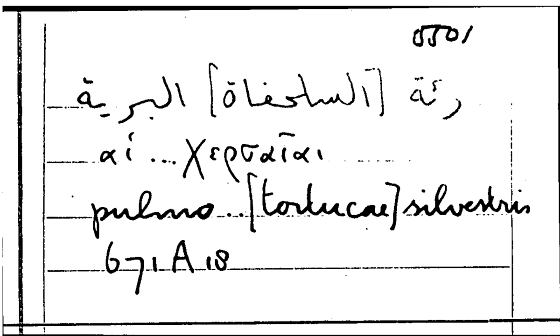 0501
رئة [السلحفاة] البرية
αἱ ... χερσαῖαι
pulmo .. [tortucae] silvestris
671 A 18